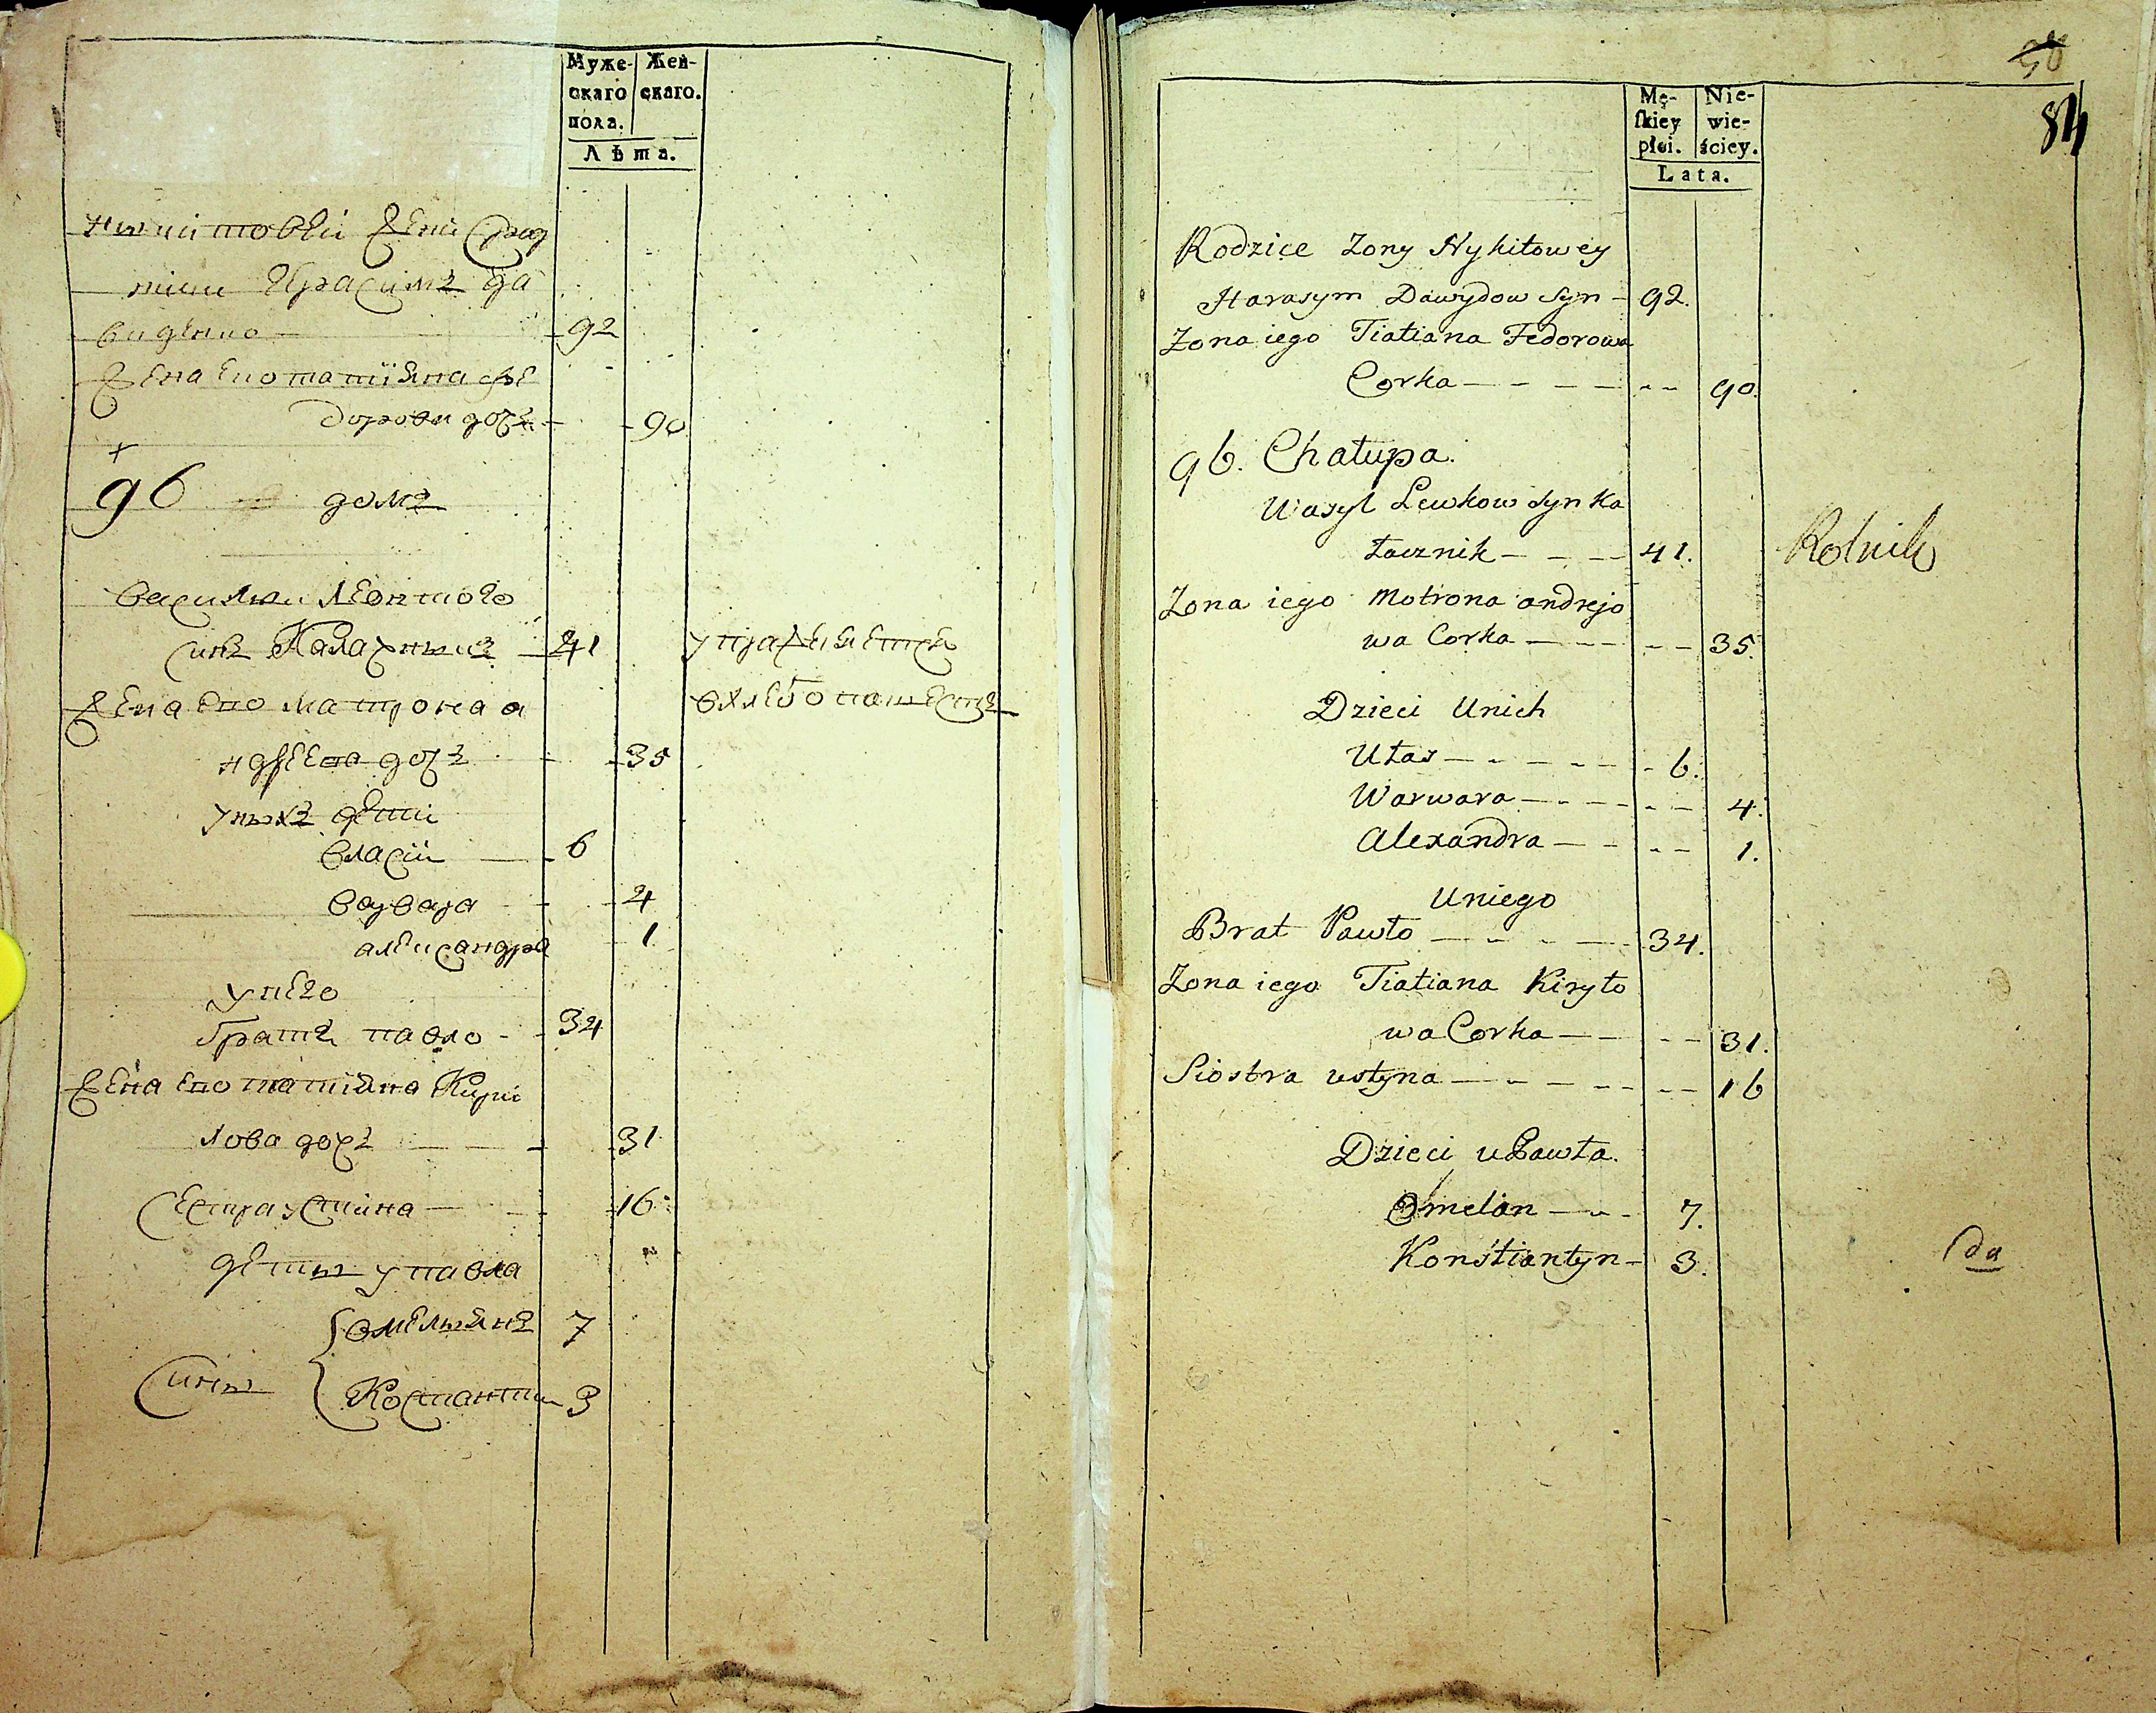 Муже- Жен-
скаго скаго.
пола.
Лѣта.
жени
Герасимъ да
виденко 92
жена его татіяна фе
дорова дочь 90
96 домъ
василии Леонтово
синъ Калачникъ 41 упражняется
жена его матрона а в хлебопашестве
ндреева дочъ 35
у ныхъ дети
власіи 6
варвара 4
александра 1
у него
братъ павло 34
жена его татіяна Кири
лова дочъ 31
сестра устина 16
дети у павла
омельянъ 7
сини Костантин 3
50
84
Mę- Nie-
ſkiey wie-
płci. ściey.
Lata.
Rodzice Zony Nykitowey
Harasym Dawydow Syn 92.
Zona iego Tiatiana Fedorowa
Corka 90.
96. Chałupa.
Wasyl Lewkow Syn Ka
łacznik 41. Rolnik
Zona iego Motrona andrejo
wa Corka 35.
Dzieci Unich
Ułas 6.
Warwara 4.
Alexandra 1.
Uniego
Brat Pawło 34.
Zona iego Tiatiana Kiryło
wa Corka 31.
Siostra ustyna 16
Dzieci u Pawła.
Omelan 7.
Konstiantyn 3.